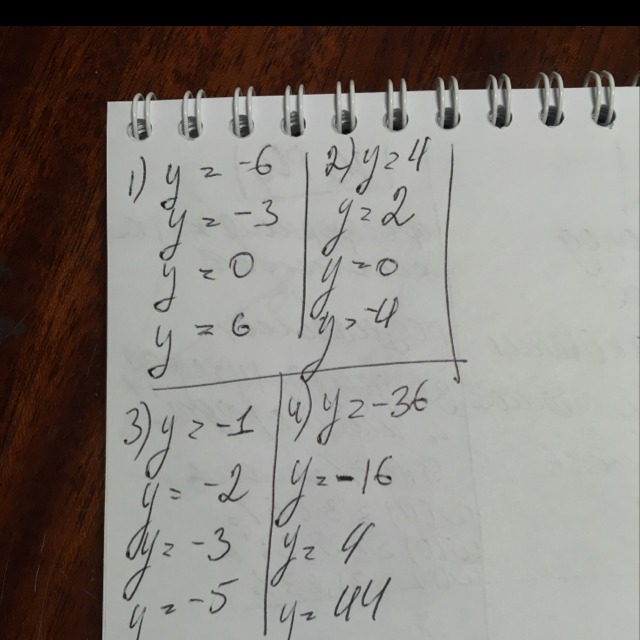 1) y = -6
y = -3
y = 0
y = 6
2) y = 4
y = 2
y = 0
y = -4
3) y = -1
y = -2
y = -3
y = -5
4) y = -36
y = -16
y = 4
y = 44